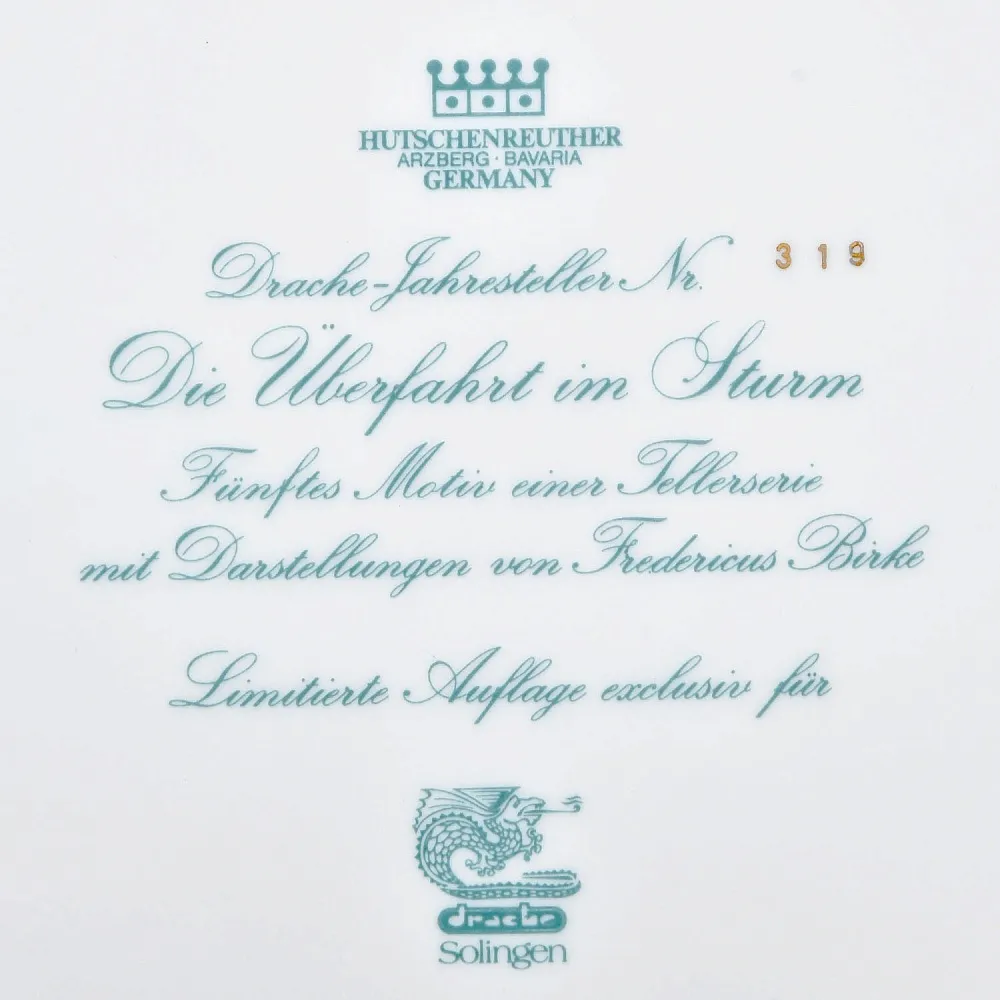 HUTSCHENREUTHER
ARZBERG · BAVARIA
GERMANY
Drache-Jahresteller Nr. 319
Die Überfahrt im Sturm
Fünftes Motiv einer Tellerserie
mit Darstellungen von Fredericus Birke
Limitierte Auflage exclusiv für
drache
Solingen